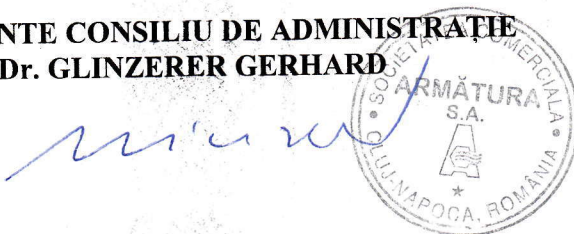 NTE CONSILIU DE ADMINISTRAȚIE
Dr. GLINZERER GERHARD
SOCIETATE COMERCIALĂ
ARMĂTURA
S.A.
CLUJ-NAPOCA, ROMÂNIA